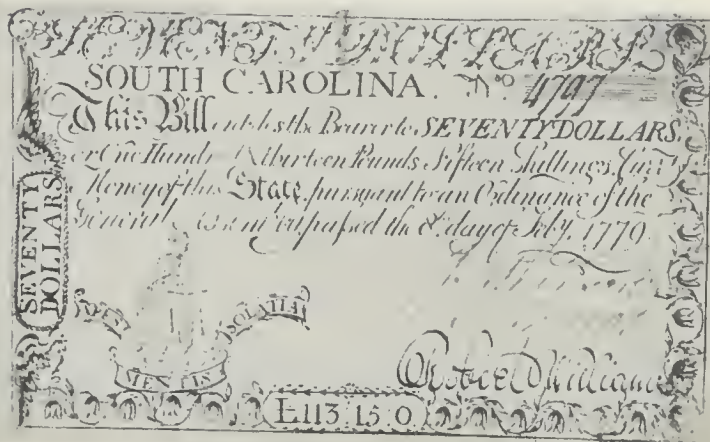 SEVENTY DOLLARS
SOUTH CAROLINA. No. 4797
This Bill entitles the Bearer to SEVENTY DOLLARS,
or One Hundd. & thirteen Pounds Fifteen Shillings, Curt.
Money of this State, pursuant to an Ordinance of the
General passed the 8. day of Feby. 1779
SEVENTY
DOLLARS
SOLATIA
MENTIS
Robert Williams
£113 15 0